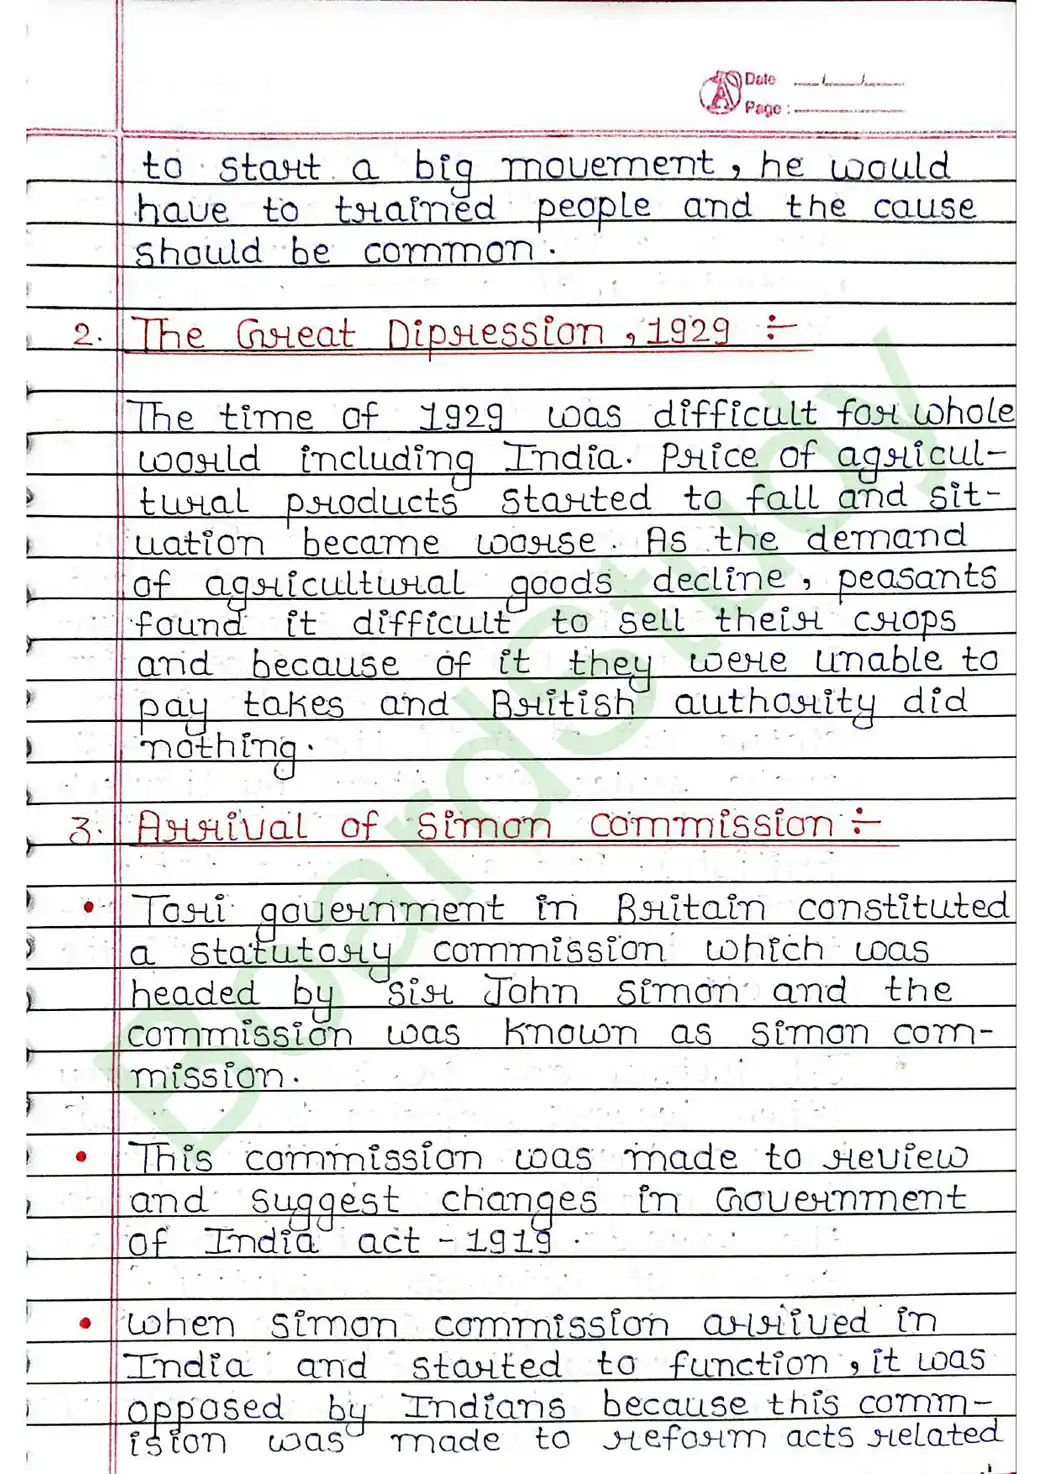 Date
Page :
to start a big movement, he would
have to trained people and the cause
should be common.
2. The Great Dipression, 1929 ÷
The time of 1929 was difficult for whole
woorld including India. Price of agricul-
tural products started to fall and sit-
uation became worse. As the demand
of agricultural goods decline, peasants
found it difficult to sell their crops
and because of it they were unable to
pay takes and British authority did
nothing.
3. Arrival of Simon Commission ÷
• Tori government in Britain constituted
a statutory commission which was
headed by Sir John Simon and the
commission was known as simon com-
mission.
• This commission was made to review
and suggest changes in Government
of India act - 1919.
• When simon commission arriived in
India and started to function, it was
opposed by Indians because this comm-
ision was made to reform acts related
BoardStudy